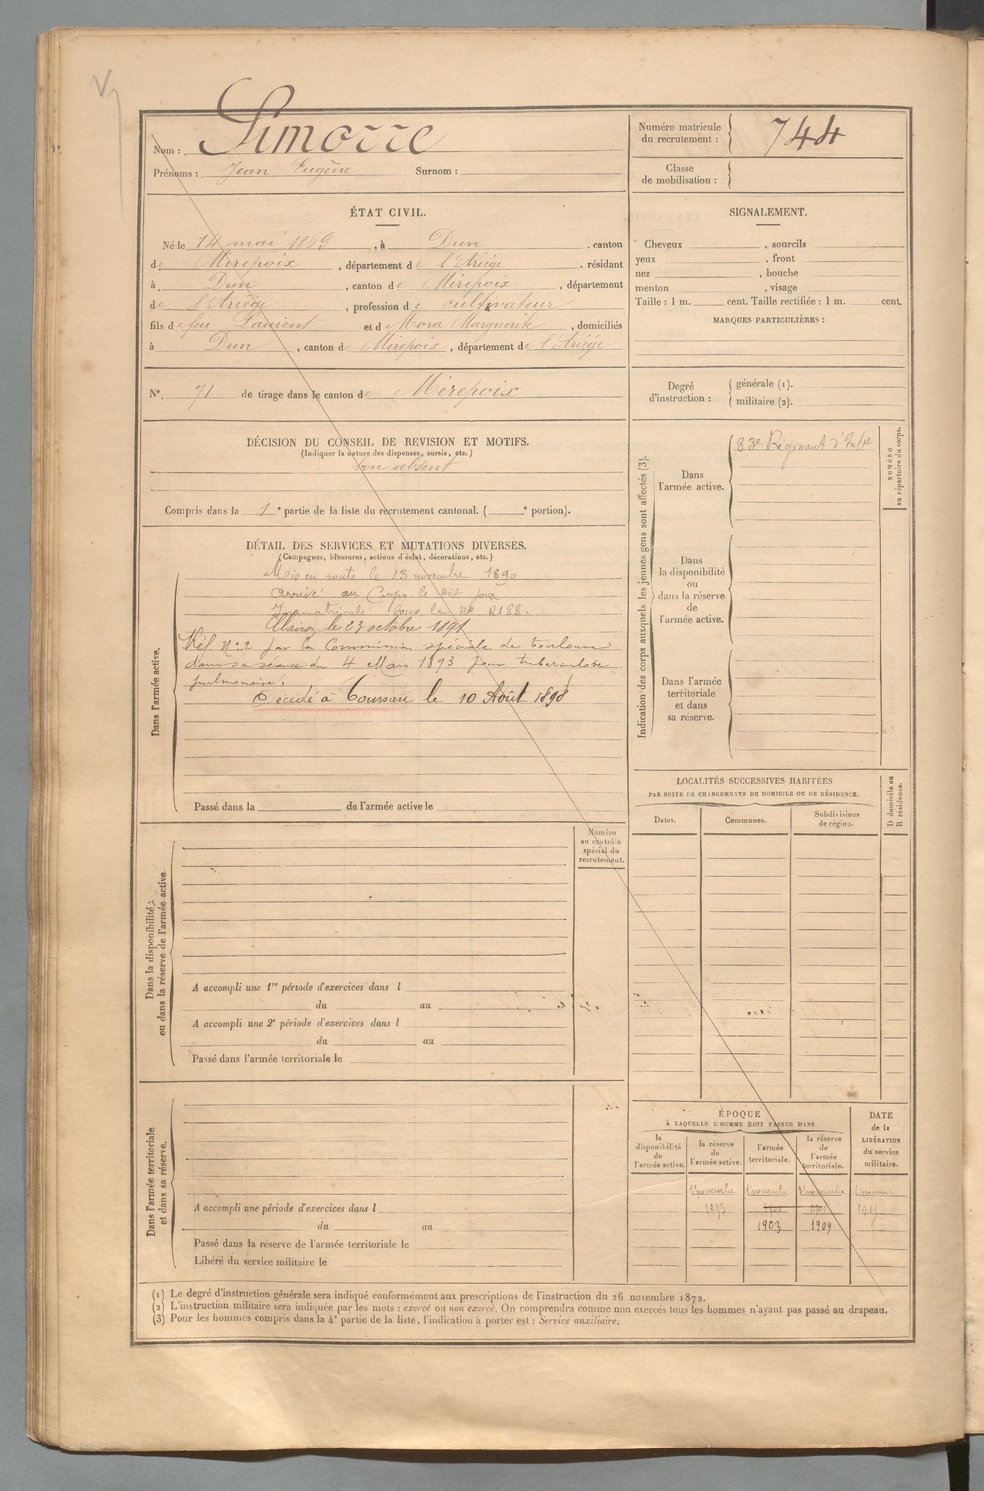 Nom : Simorre
Prénoms : Jean Eugène Surnom :
Numéro matricule du recrutement : 744
Classe de mobilisation :
ÉTAT CIVIL.
Né le 14 mai 1869, à Dun, canton
de Mirepoix, département de l'Ariège, résidant
à Dun, canton de Mirepoix, département
de l'Ariège, profession de cultivateur
fils de feu Laurent et de Mora Marguerite, domiciliés
à Dun, canton de Mirepoix, département de l'Ariège
N°. 71 de tirage dans le canton de Mirepoix
DÉCISION DU CONSEIL DE REVISION ET MOTIFS.
(Indiquer la nature des dispenses, sursis, etc.)
bon absent
Compris dans la 1e partie de la liste du recrutement cantonal. ( e portion).
SIGNALEMENT.
Cheveux , sourcils
yeux , front
nez , bouche
menton , visage
Taille : 1 m. cent. Taille rectifiée : 1 m. cent.
MARQUES PARTICULIÈRES :
Degré d'instruction : générale (1).
militaire (2).
DÉTAIL DES SERVICES ET MUTATIONS DIVERSES.
(Campagnes, blessures, actions d'éclat, décorations, etc.)
Dans l'armée active.
Mis en route le 13 novembre 1890
arrivé au Corps le dit jour
Immatriculé sous le no 2188.
Clairon le 23 octobre 1891
Réf. No 2 par la Commission spéciale de Toulouse
dans sa séance du 4 Mars 1893 pour tuberculose
pulmonaire.
Décédé à le 10 Août 1898
Passé dans la de l'armée active le
Indication des corps auxquels les jeunes gens sont affectés (3).
NUMÉRO au répertoire du corps.
Dans l'armée active.
83e Régiment d'Infie
Dans la disponibilité ou dans la réserve de l'armée active.
Dans l'armée territoriale et dans sa réserve.
LOCALITÉS SUCCESSIVES HABITÉES
PAR SUITE DE CHANGEMENTS DE DOMICILE OU DE RÉSIDENCE.
D domicile ou R résidence.
Dates. Communes. Subdivisions de région.
Dans la disponibilité ou dans la réserve de l'armée active.
Numéro au contrôle spécial du recrutement.
A accompli une 1re période d'exercices dans l
du au
A accompli une 2e période d'exercices dans l
du au
Passé dans l'armée territoriale le
Dans l'armée territoriale et dans sa réserve.
A accompli une période d'exercices dans l
du au
Passé dans la réserve de l'armée territoriale le
Libéré du service militaire le
ÉPOQUE
À LAQUELLE L'HOMME DOIT PASSER DANS
la disponibilité de l'armée active.
la réserve de l'armée active.
l'armée territoriale.
la réserve de l'armée territoriale.
DATE de la LIBÉRATION du service militaire.
1 novembre 1 novembre 1 novembre
1893
1903 1909
(1) Le degré d'instruction générale sera indiqué conformément aux prescriptions de l'instruction du 26 novembre 1872.
(2) L'instruction militaire sera indiquée par les mots : exercé ou non exercé. On comprendra comme non exercés tous les hommes n'ayant pas passé au drapeau.
(3) Pour les hommes compris dans la 4e partie de la liste, l'indication à porter est : Service auxiliaire.